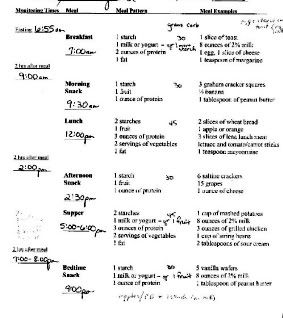 Monitoring Times Meal Meal Pattern Meal Examples
grams carb
Fasting 6:55am
Breakfast 1 starch 30 1 slice of toast
1 milk or yogurt - or 1 starch 8 ounces of 2% milk
7:00am 2 ounces of protein 1 egg, 1 slice of cheese
1 fat 1 teaspoon of margarine
2 hrs after meal
9:00am
Morning 1 starch 30 3 graham cracker squares
Snack 1 fruit ½ banana
1 ounce of protein 1 tablespoon of peanut butter
9:30am
Lunch 2 starches 45 2 slices of wheat bread
1 fruit 1 apple or orange
12:00pm 3 ounces of protein 3 slices of lean lunch meat
2 servings of vegetables lettuce and tomato/carrot sticks
1 fat 1 teaspoon mayonnaise
2 hrs after meal
2:00pm
Afternoon 1 starch 30 6 saltine crackers
Snack 1 fruit 15 grapes
1 ounce of protein 1 ounce of cheese
2:30pm
Supper 2 starches 45 1 cup of mashed potatoes
1 milk or yogurt - or 1 fruit 8 ounces of 2% milk
5:00-6:00pm 3 ounces of protein 3 ounces of grilled chicken
2 servings of vegetables 1 cup of string beans
2 fat 2 tablespoons of sour cream
2 hrs after meal
7:00-8:00pm
Bedtime 1 starch 30 5 vanilla wafers
Snack 1 milk or yogurt - or 1 fruit 8 ounces of 2% milk
1 ounce of protein 1 tablespoon of peanut butter
9:00pm